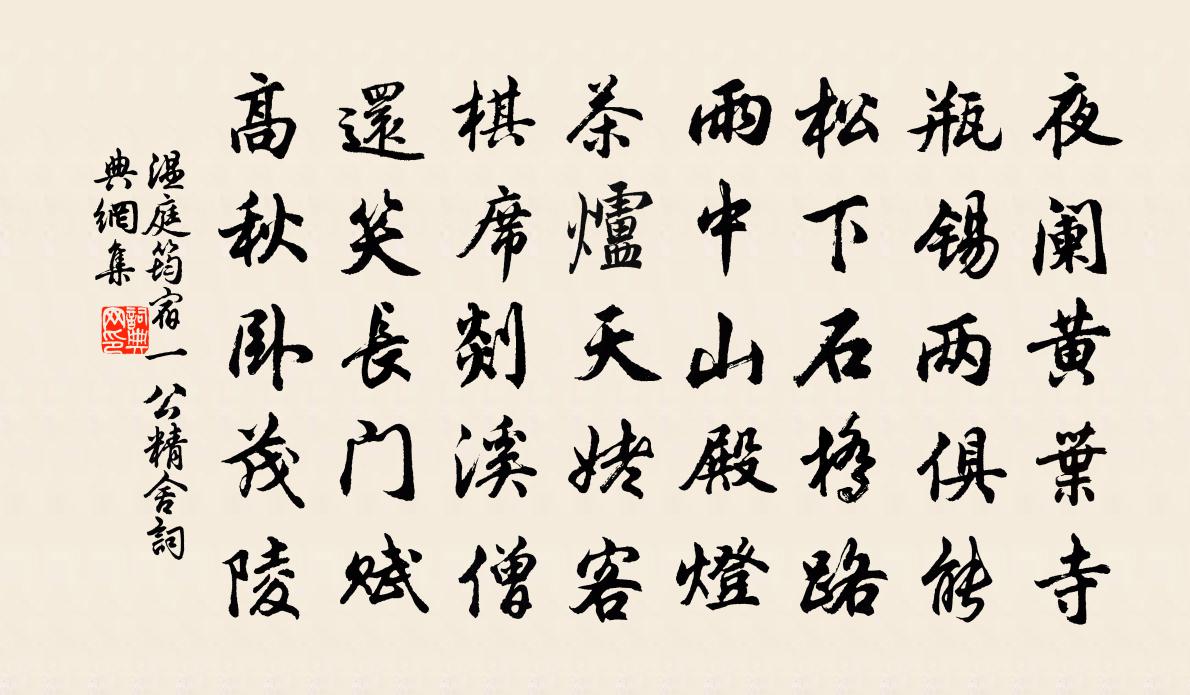 夜阑黄葉寺
瓶锡两俱能
松下石橋路
雨中山殿燈
茶爐天姥客
棋席剡溪僧
還笑長门赋
高秋卧茂陵
温庭筠宿一公精舍詞
典網集
詞典网印